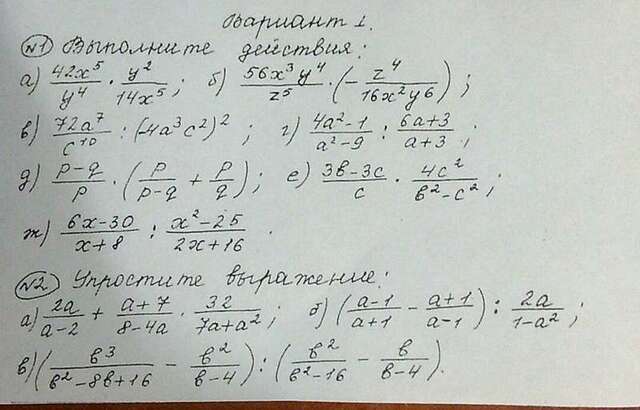 Вариант 1.
№1 Выполните действия:
а) 42x⁵/y⁴ · y²/14x⁵; б) 56x³y⁴/z⁵ · (-z⁴/16x²y6);
в) 72a⁷/c¹⁰ : (-4a³c²)²; г) 4a²-1/a²-9 : 6a+3/a+3;
д) p-q/p · (p/p-q + p/q); е) 3в-3c/c · 4c²/в²-c²;
ж) 6x-30/x+8 : x²-25/2x+16.
№2 Упростите выражение:
а) 2a/a-2 + a+7/8-4a · 32/7a+a²; б) (a-1/a+1 - a+1/a-1) : 2a/1-a²;
в) (в³/в²-8в+16 - в²/в-4) : (в²/в²-16 - в/в-4).